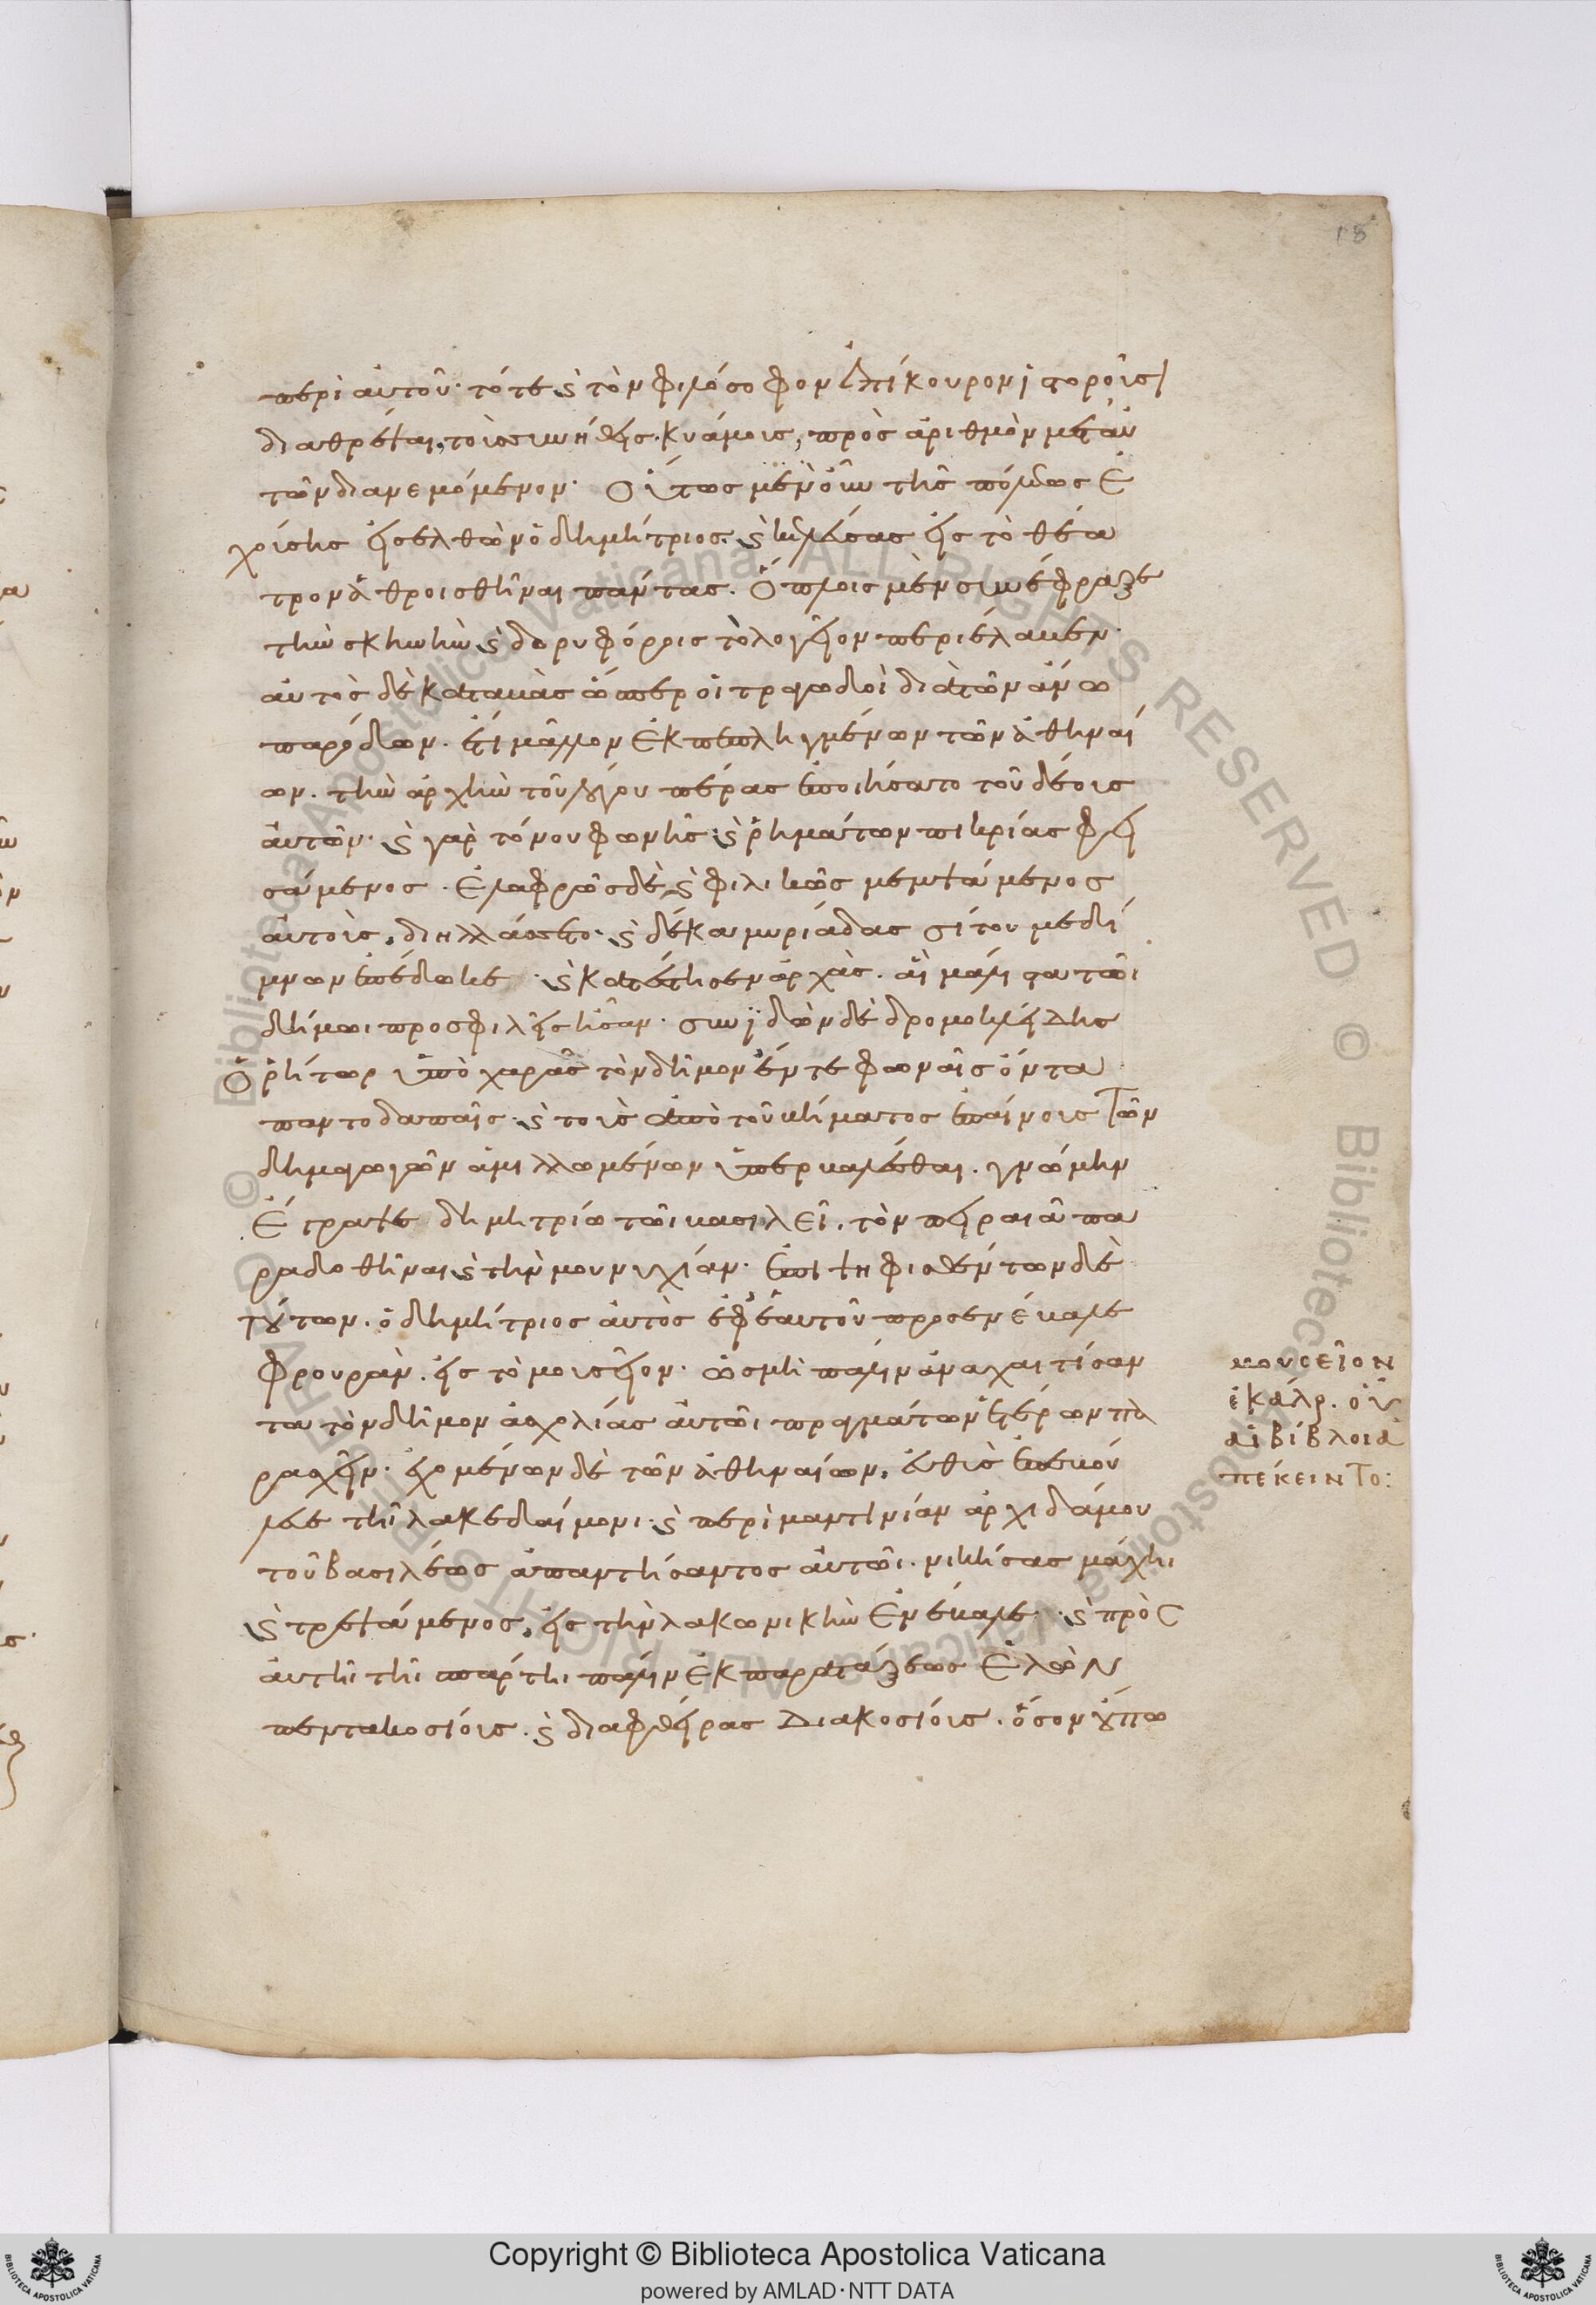 περὶ αὐτοῦ· τότε ϗ τὸν φιλόσοφον ἐπίκουρον ἱστοροῦσι
διαθρέψαι, τοὺς συνήθεις· κυάμους, πρὸς ἀριθμὸν μετ αὐ
τῶν διανεμόμενον· οὕτως μὲν οὖν τῆς πόλεως ἐ
χούσης εἰσελθὼν ὁ δημήτριος. ϗ κελεύσας εἰς τὸ θέα
τρον ἀθροισθῆναι πάντας. ὅπλοις μὲν συνέφραξε
τὴν σκηνὴν ϗ δορυφόροις τὸ λογεῖον περιέλαβεν·
αὐτὸς δὲ καταβὰς ὥσπερ οἱ τραγωδοὶ διὰ τῶν ἄνω
παρόδων. ἔτι μᾶλλον ἐκπεπληγμένων τῶν ἀθηναί
ων. τὴν ἀρχὴν τοῦ λόγου πέρας ἐποιήσατο τοῦ δέους
αὐτῶν· ϗ γὰρ τόνου φωνῆς ϗ ῥημάτων πικρίας φει
σάμενος. ἐλαφρῶς δὲ ϗ φιλικῶς μεμψάμενος
αὐτοῖς. διηλλάσσετο· ϗ δέκα μυριάδας σίτου μεδί
μνων ἐπέδωκε · ϗ κατέστησεν ἀρχὰς. αἳ μάλιστα τῶι
δήμωι προσφιλεῖς ἦσαν· συνϊδὼν δὲ δρομοκλείδης
ὁ ῥήτωρ ὑπὸ χαρᾶς τὸν δῆμον ἔν τε φωναῖς ὄντα
παντοδαπαῖς· ϗ τοὺς ἀπὸ τοῦ βήματος ἐπαίνους τῶν
δημαγωγῶν ἁμιλλωμένων ὑπερβαλέσθαι. γνώμην
ἔγραψε δημητρίω τῶι βασιλεῖ. τὸν πειραιᾶ πα
ραδοθῆναι ϗ τὴν μουνυχίαν· ἐπιψηφισθέντων δὲ
τούτων. ὁ δημήτριος αὐτὸς ἐφ' ἑαυτοῦ προσενέβαλε
φρουρὰν. εἰς τὸ μουσεῖον· ὡς μὴ πάλιν ἀναχαιτίσαν
τα τὸν δῆμον ἀσχολίας αὐτῶι πραγμάτων ἑτέρων πα
ρασχεῖν· ἐχομένων δὲ τῶν ἀθηναίων. εὐθὺς ἐπεβού
λευε τῆι λακεδαίμονι· ϗ περὶ μαντινίαν ἀρχιδάμου
τοῦ βασιλέως ἀπαντήσαντος αὐτῶι. νικήσας μάχηι
ϗ τρεψάμενος. εἰς τὴν λακωνικὴν ἐνέβαλε· ϗ πρὸς
αὐτῆι τῆι σπάρτηι πάλιν ἐκ παρατάξεως ἑλὼν
πεντακοσίους. ϗ διαφθείρας διακοσίους. ὅσον οὔπω
μουσεῖον
ἐκάλουν. οὗ
αἱ βίβλοι ἀ
πέκειντο:
18
Copyright © Biblioteca Apostolica Vaticana
powered by AMLAD·NTT DATA